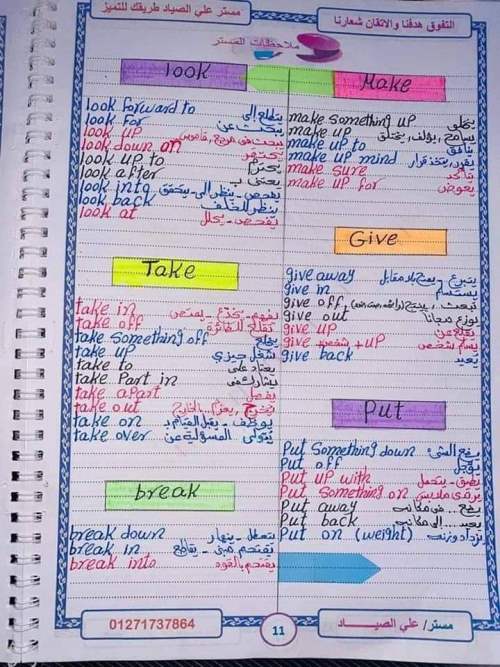 التفوق هدفنا والاتقان شعارنا
مستر علي الصياد طريقك للتميز
ملاحظات المستر
look
look forward to يتطلع إلى
look for يبحث عن
look up يبحث فى مرجع، قاموس
look down on يحتقر
look up to يحترم
look after يعتنى بـ
look into يفحص - ينظر إلى - يتحقق
look back ينظر للخلف
look at يتفحص - يحلل
Take
take in
take off تقلع للطائرة
take something off يخلع
take up
take to يعتاد على
take Part in يشارك فى
take apart يفصل
take out
take on يوظف - يقبل القيام بـ
take over يتولى المسؤلية عن
break
break down يتعطل - ينهار
break in يقتحم مبنى - يقاطع
break into يقتحم بالقوة
Make
make something up يختلق
make up يسامح، يؤلف، يختلق
make up to
make up mind يقرر، يتخذ قرار
make sure يتأكد
make up for يعوض
Give
give away يتبرع - يمنح بلا مقابل
give in يستسلم
give off
give out يوزع مجانا
give up يقلع عن
give + شخص + up يسلم شخص
give back يعيد
Put
Put Something down يضع الشئ
Put off يؤجل
Put up with يطيق - يتحمل
Put Something on يرتدى ملابس
Put away يضع... فى مكانه
Put back يعيد... إلى مكانه
Put on (weight) يزداد وزنه
01271737864
11
مستر/ علي الصيـــــاد